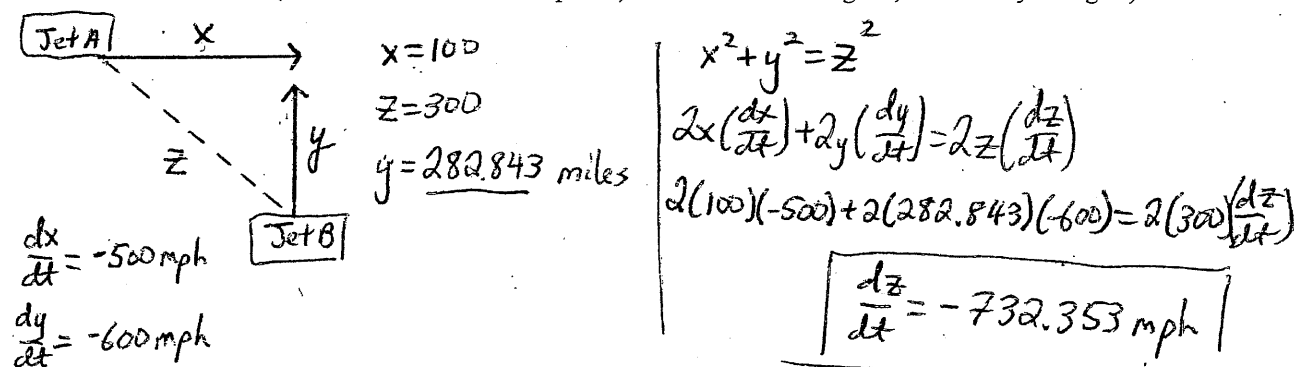 Jet A
x
y
z
Jet B
dx/dt = -500 mph
dy/dt = -600 mph
x=100
z=300
y=282.843 miles
x²+y²=z²
2x(dx/dt)+2y(dy/dt)=2z(dz/dt)
2(100)(-500)+2(282.843)(-600)=2(300)(dz/dt)
dz/dt = -732.353 mph